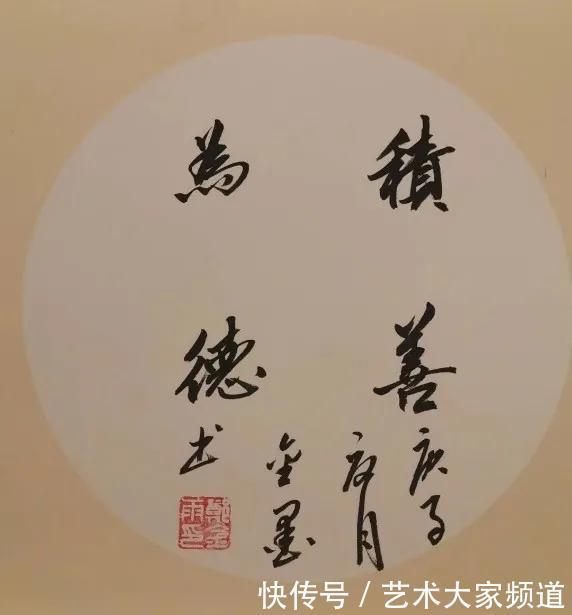 積善
為德
庚子
月
金墨
书
快传号 / 艺术大家频道